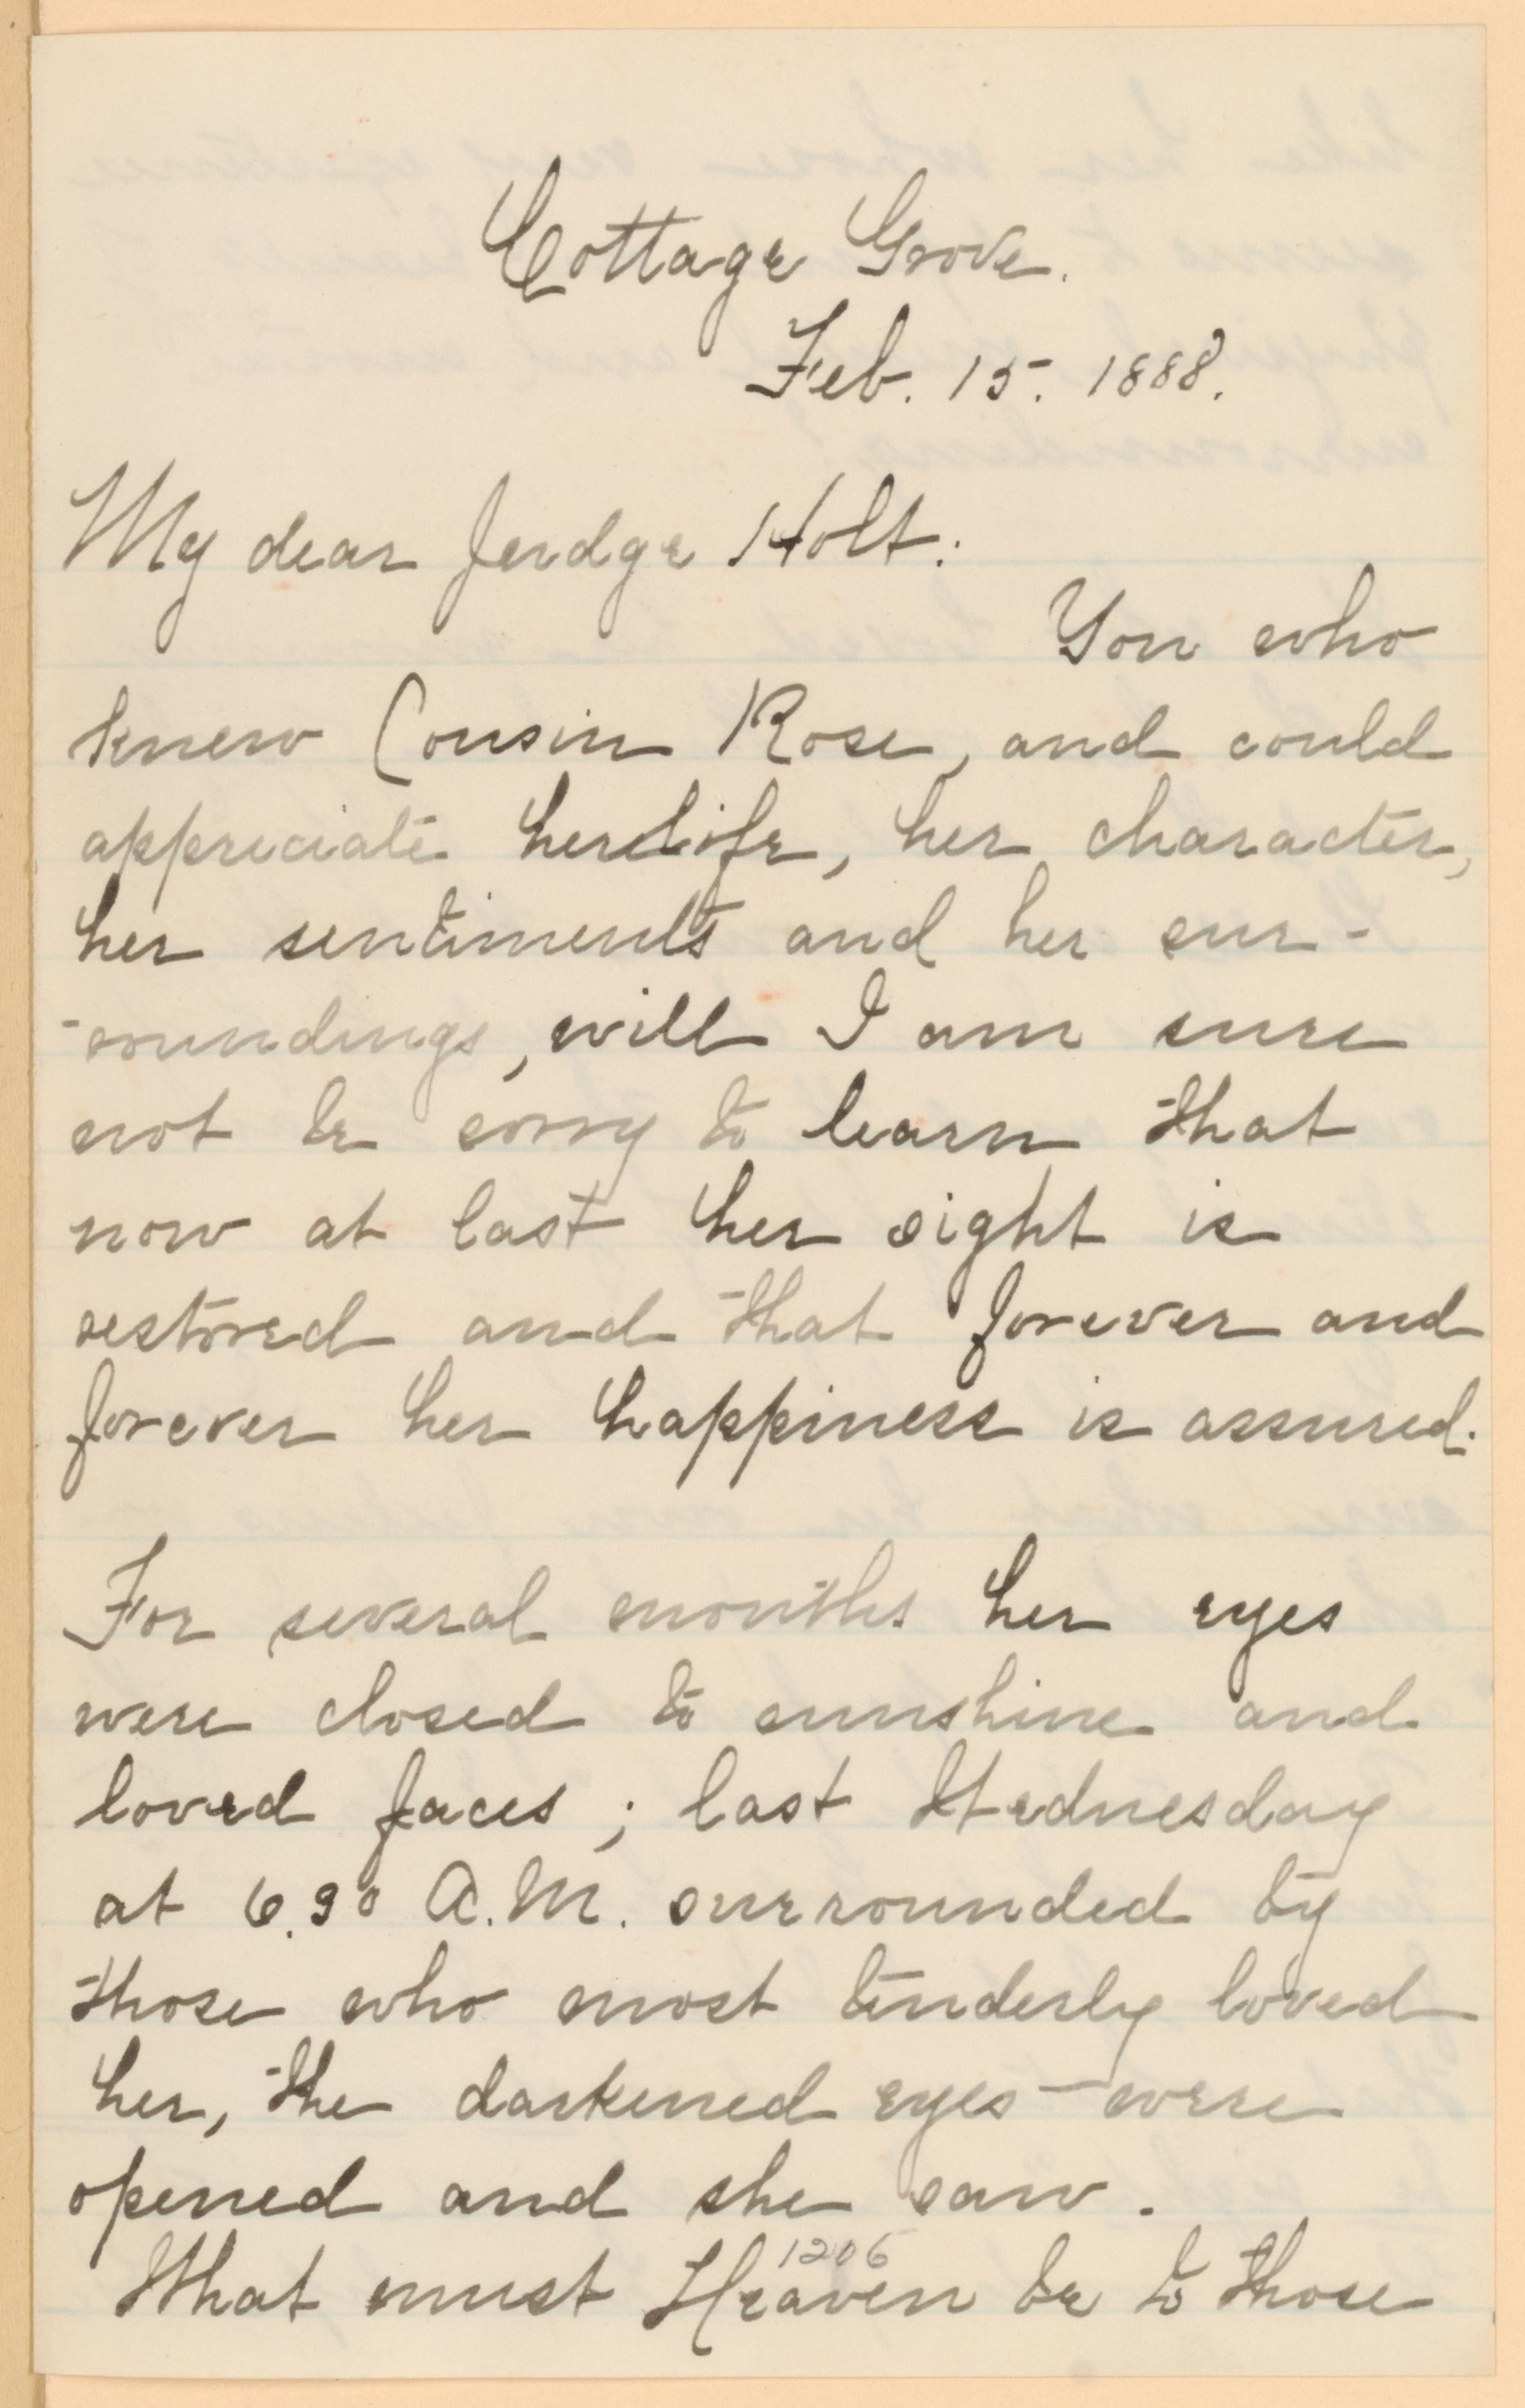 Cottage Grove.
Feb. 15. 1888.
My dear Judge Holt:
You who
knew Cousin Rose, and could
appreciate her life, her character,
her sentiments and her sur-
-roundings, will I am sure
not be sorry to learn that
now at last her sight is
restored and that forever and
forever her happiness is assured.
For several months her eyes
were closed to sunshine and
loved faces; last Wednesday
at 6.30 A.M. surrounded by
those who most tenderly loved
her, the darkened eyes were
opened and she saw.
1206
What must Heaven be to those